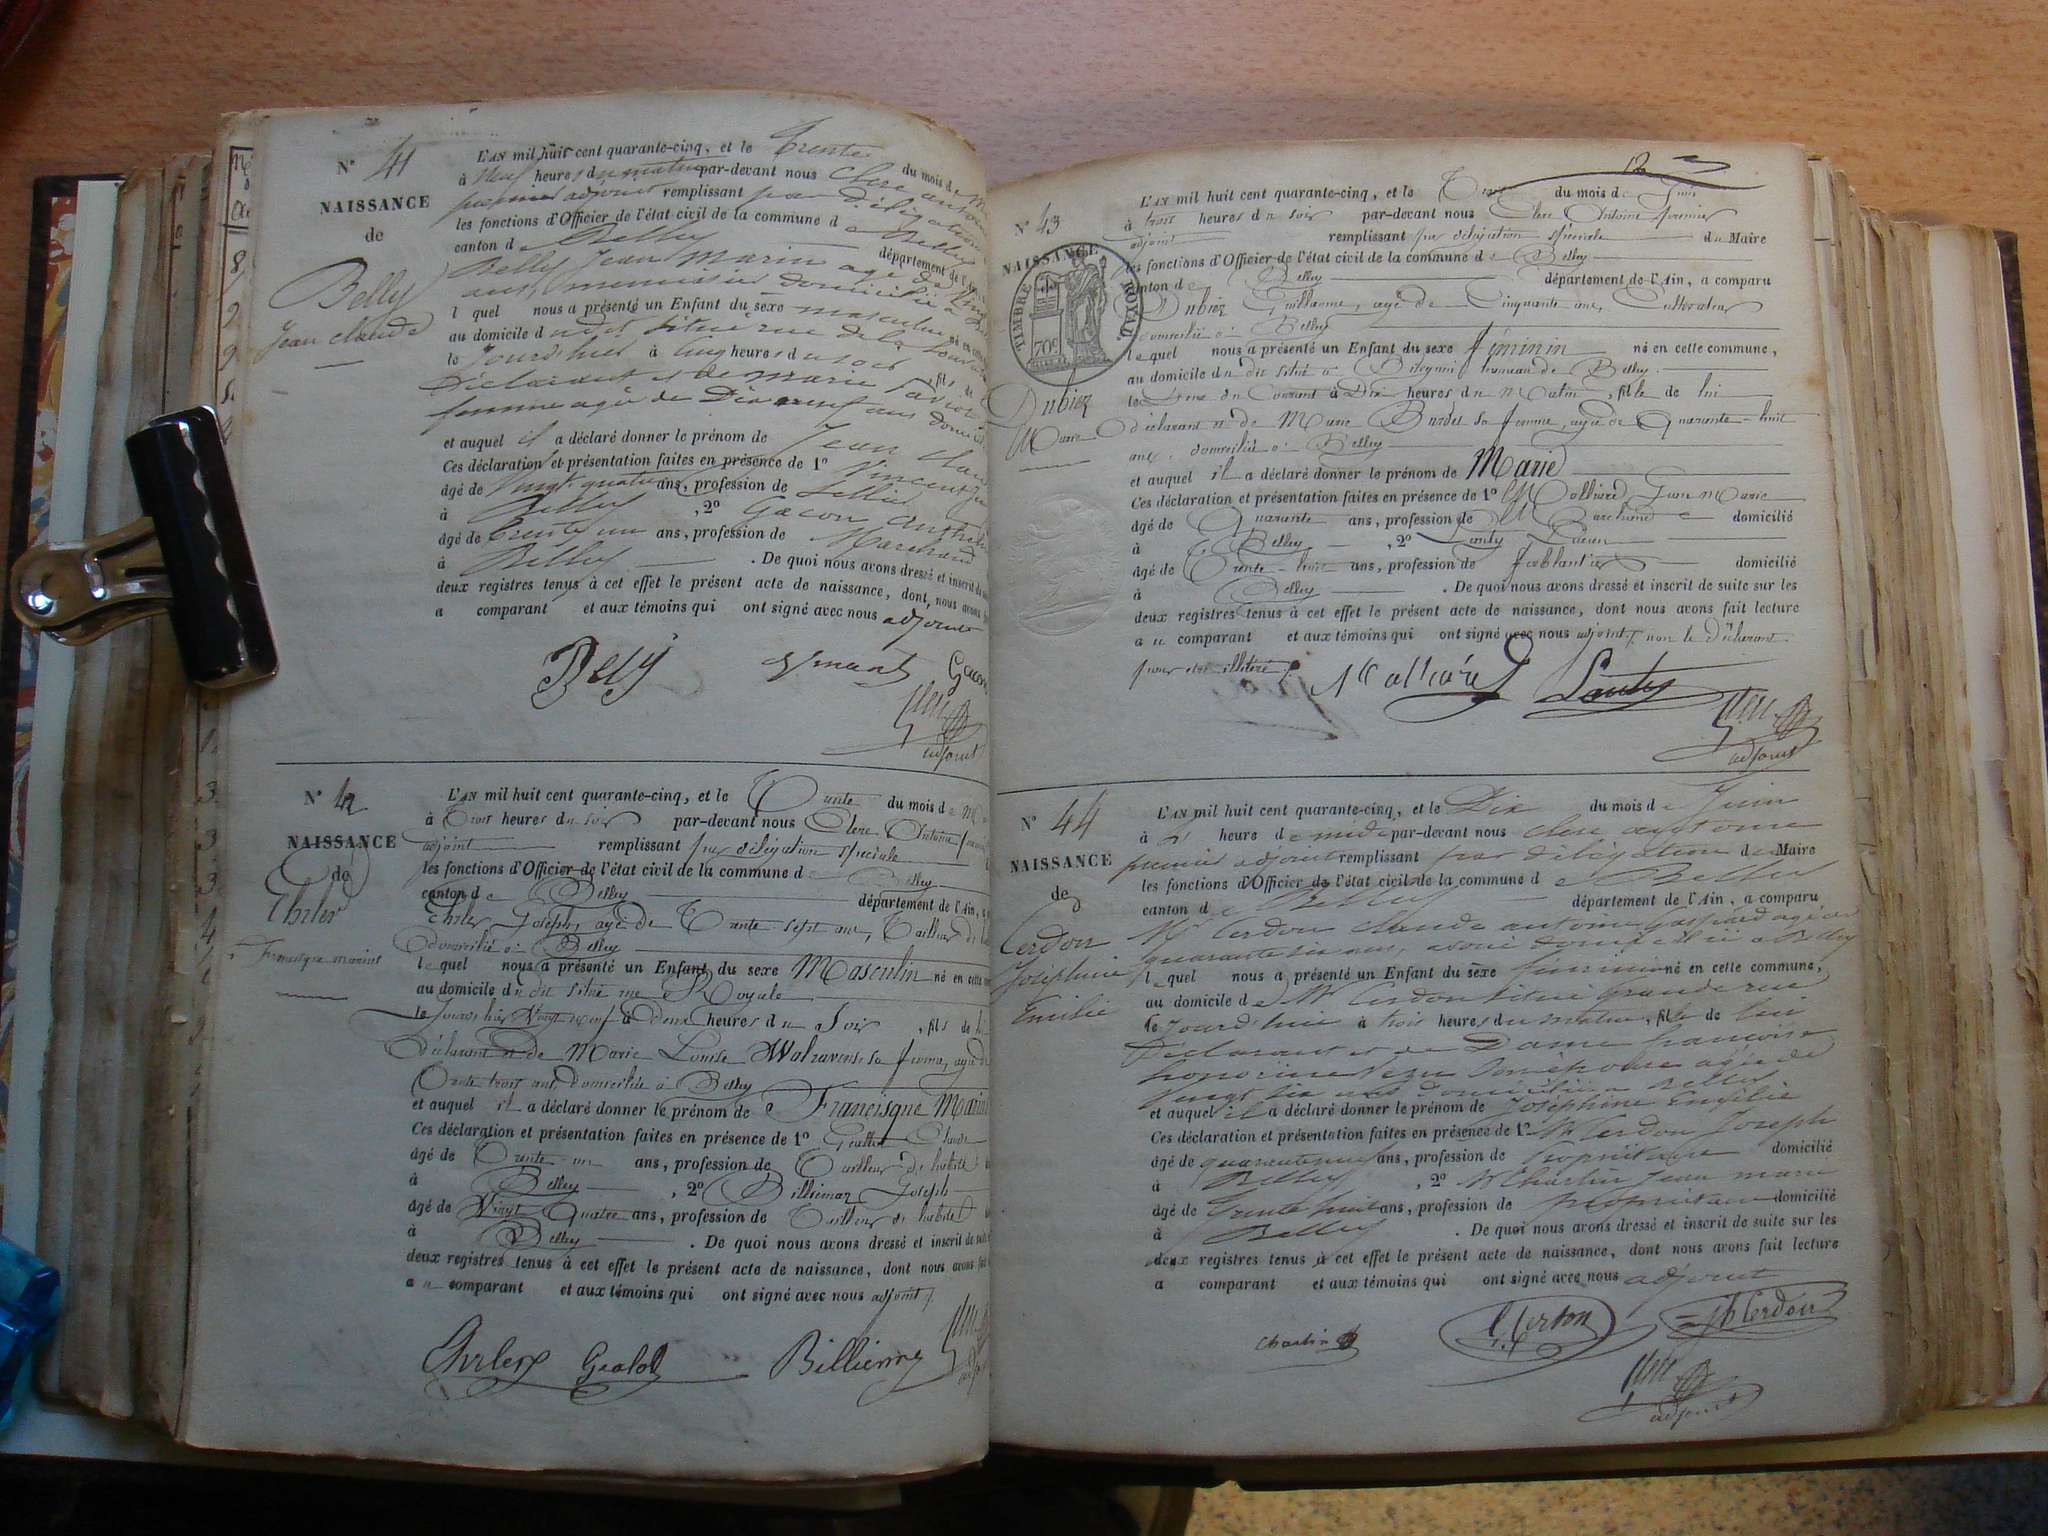 N° 41
NAISSANCE
de
Belly
Jean Claude
L'AN mil huit cent quarante-cinq, et le Trente du mois de
à Neuf heures du matin par-devant nous Clerc antoine
premier adjoint remplissant par délégation
les fonctions d'Officier de l'état civil de la commune de Belley
canton de Belley département de l'Ain
Belly Jean Marin agé de
ans, menuisier domicilié à
lequel nous a présenté un Enfant du sexe masculin né en cette
au domicile du dit situé rue de la
le Jourd'hier à Cinq heures du soir, fils de
Déclarant et de Marie
femme agée de Dix neuf ans
et auquel il a déclaré donner le prénom de Jean
Ces déclaration et présentation faites en présence de 1° Vincent
âgé de Vingt quatre ans, profession de Sellier
à Belley, 2° Gacon
âgé de trente un ans, profession de Marchand
à Belley. De quoi nous avons dressé et inscrit de
deux registres tenus à cet effet le présent acte de naissance, dont, nous avons
a comparant et aux témoins qui ont signé avec nous adjoint
Belly Gacon
adjoint
N° 42
NAISSANCE
de
Ehrler
Francisque marius
L'AN mil huit cent quarante-cinq, et le Trente du mois de
à Trois heures du soir par-devant nous Clerc Antoine
adjoint remplissant par délégation spéciale
les fonctions d'Officier de l'état civil de la commune de Belley
canton de Belley département de l'Ain,
Ehrler Joseph, agé de Trente sept ans, Tailleur
domicilié à Belley
lequel nous a présenté un Enfant du sexe Masculin né en cette
au domicile du dit situé rue Royale
le Jourd'hier Vingt neuf à deux heures du Soir, fils de
déclarant et de Marie Louise Walravens sa femme, agée de
Trente trois ans, domiciliée à Belley
et auquel il a déclaré donner le prénom de Francisque Marius
Ces déclaration et présentation faites en présence de 1° Claude
âgé de Trente un ans, profession de Tailleur de habits
à Belley, 2° Billiemaz Joseph
âgé de Vingt Quatre ans, profession de Tailleur de habits
à Belley. De quoi nous avons dressé et inscrit de suite
deux registres tenus à cet effet le présent acte de naissance, dont nous avons fait
a u comparant et aux témoins qui ont signé avec nous adjoint
Ehrler Billiemaz
12
N° 43
NAISSANCE
TIMBRE ROYAL
70c
Dubiez
Marie
L'AN mil huit cent quarante-cinq, et le Trois du mois de Juin
à trois heures du soir par-devant nous Clerc Antoine premier
adjoint remplissant par délégation spéciale du Maire
les fonctions d'Officier de l'état civil de la commune de Belley
canton de Belley département de l'Ain, a comparu
Dubiez Guillaume, agé de Cinquante ans, Cultivateur
domicilié à Belley
lequel nous a présenté un Enfant du sexe féminin né en cette commune,
au domicile du dit situé à hameau de Belley
le du Courant à Dix heures du Matin, fille de lui
déclarant et de Marie Burdet sa femme, agée de Quarante-huit
ans, domiciliée à Belley
et auquel il a déclaré donner le prénom de Marie
Ces déclaration et présentation faites en présence de 1° Molliard Jean Marie
âgé de Quarante ans, profession de Marchand domicilié
à Belley, 2° Lucien
âgé de Trente-huit ans, profession de ferblantier domicilié
à Belley. De quoi nous avons dressé et inscrit de suite sur les
deux registres tenus à cet effet le présent acte de naissance, dont nous avons fait lecture
a u comparant et aux témoins qui ont signé avec nous adjoint, non le Déclarant
pour être illitéré
Molliard
adjoint
N° 44
NAISSANCE
de
Cerdon
Joséphine
Emilie
L'AN mil huit cent quarante-cinq, et le Dix du mois de Juin
à heure de midi par-devant nous Clerc antoine
premier adjoint remplissant par délégation du Maire
les fonctions d'Officier de l'état civil de la commune de Belley
canton de Belley département de l'Ain, a comparu
Mr Cerdon claude antoine gaspard agé de
quarante six ans, avoué domicilié à Belley
lequel nous a présenté un Enfant du sexe féminin né en cette commune,
au domicile de Mr Cerdon situé Grande rue
le Jourd'hui à trois heures du matin, fille de lui
Déclarant et de Dame françoise
honorine agée de
vingt six ans domiciliée à Belley
et auquel il a déclaré donner le prénom de Joséphine Emilie
Ces déclaration et présentation faites en présence de 1° Mr Cerdon Joseph
âgé de quarante ans, profession de propriétaire domicilié
à Belley, 2° Mr Charlin Jean marie
âgé de trente huit ans, profession de propriétaire domicilié
à Belley. De quoi nous avons dressé et inscrit de suite sur les
deux registres tenus à cet effet le présent acte de naissance, dont nous avons fait lecture
a comparant et aux témoins qui ont signé avec nous adjoint
Charlin Cerdon Cerdon
adjoint